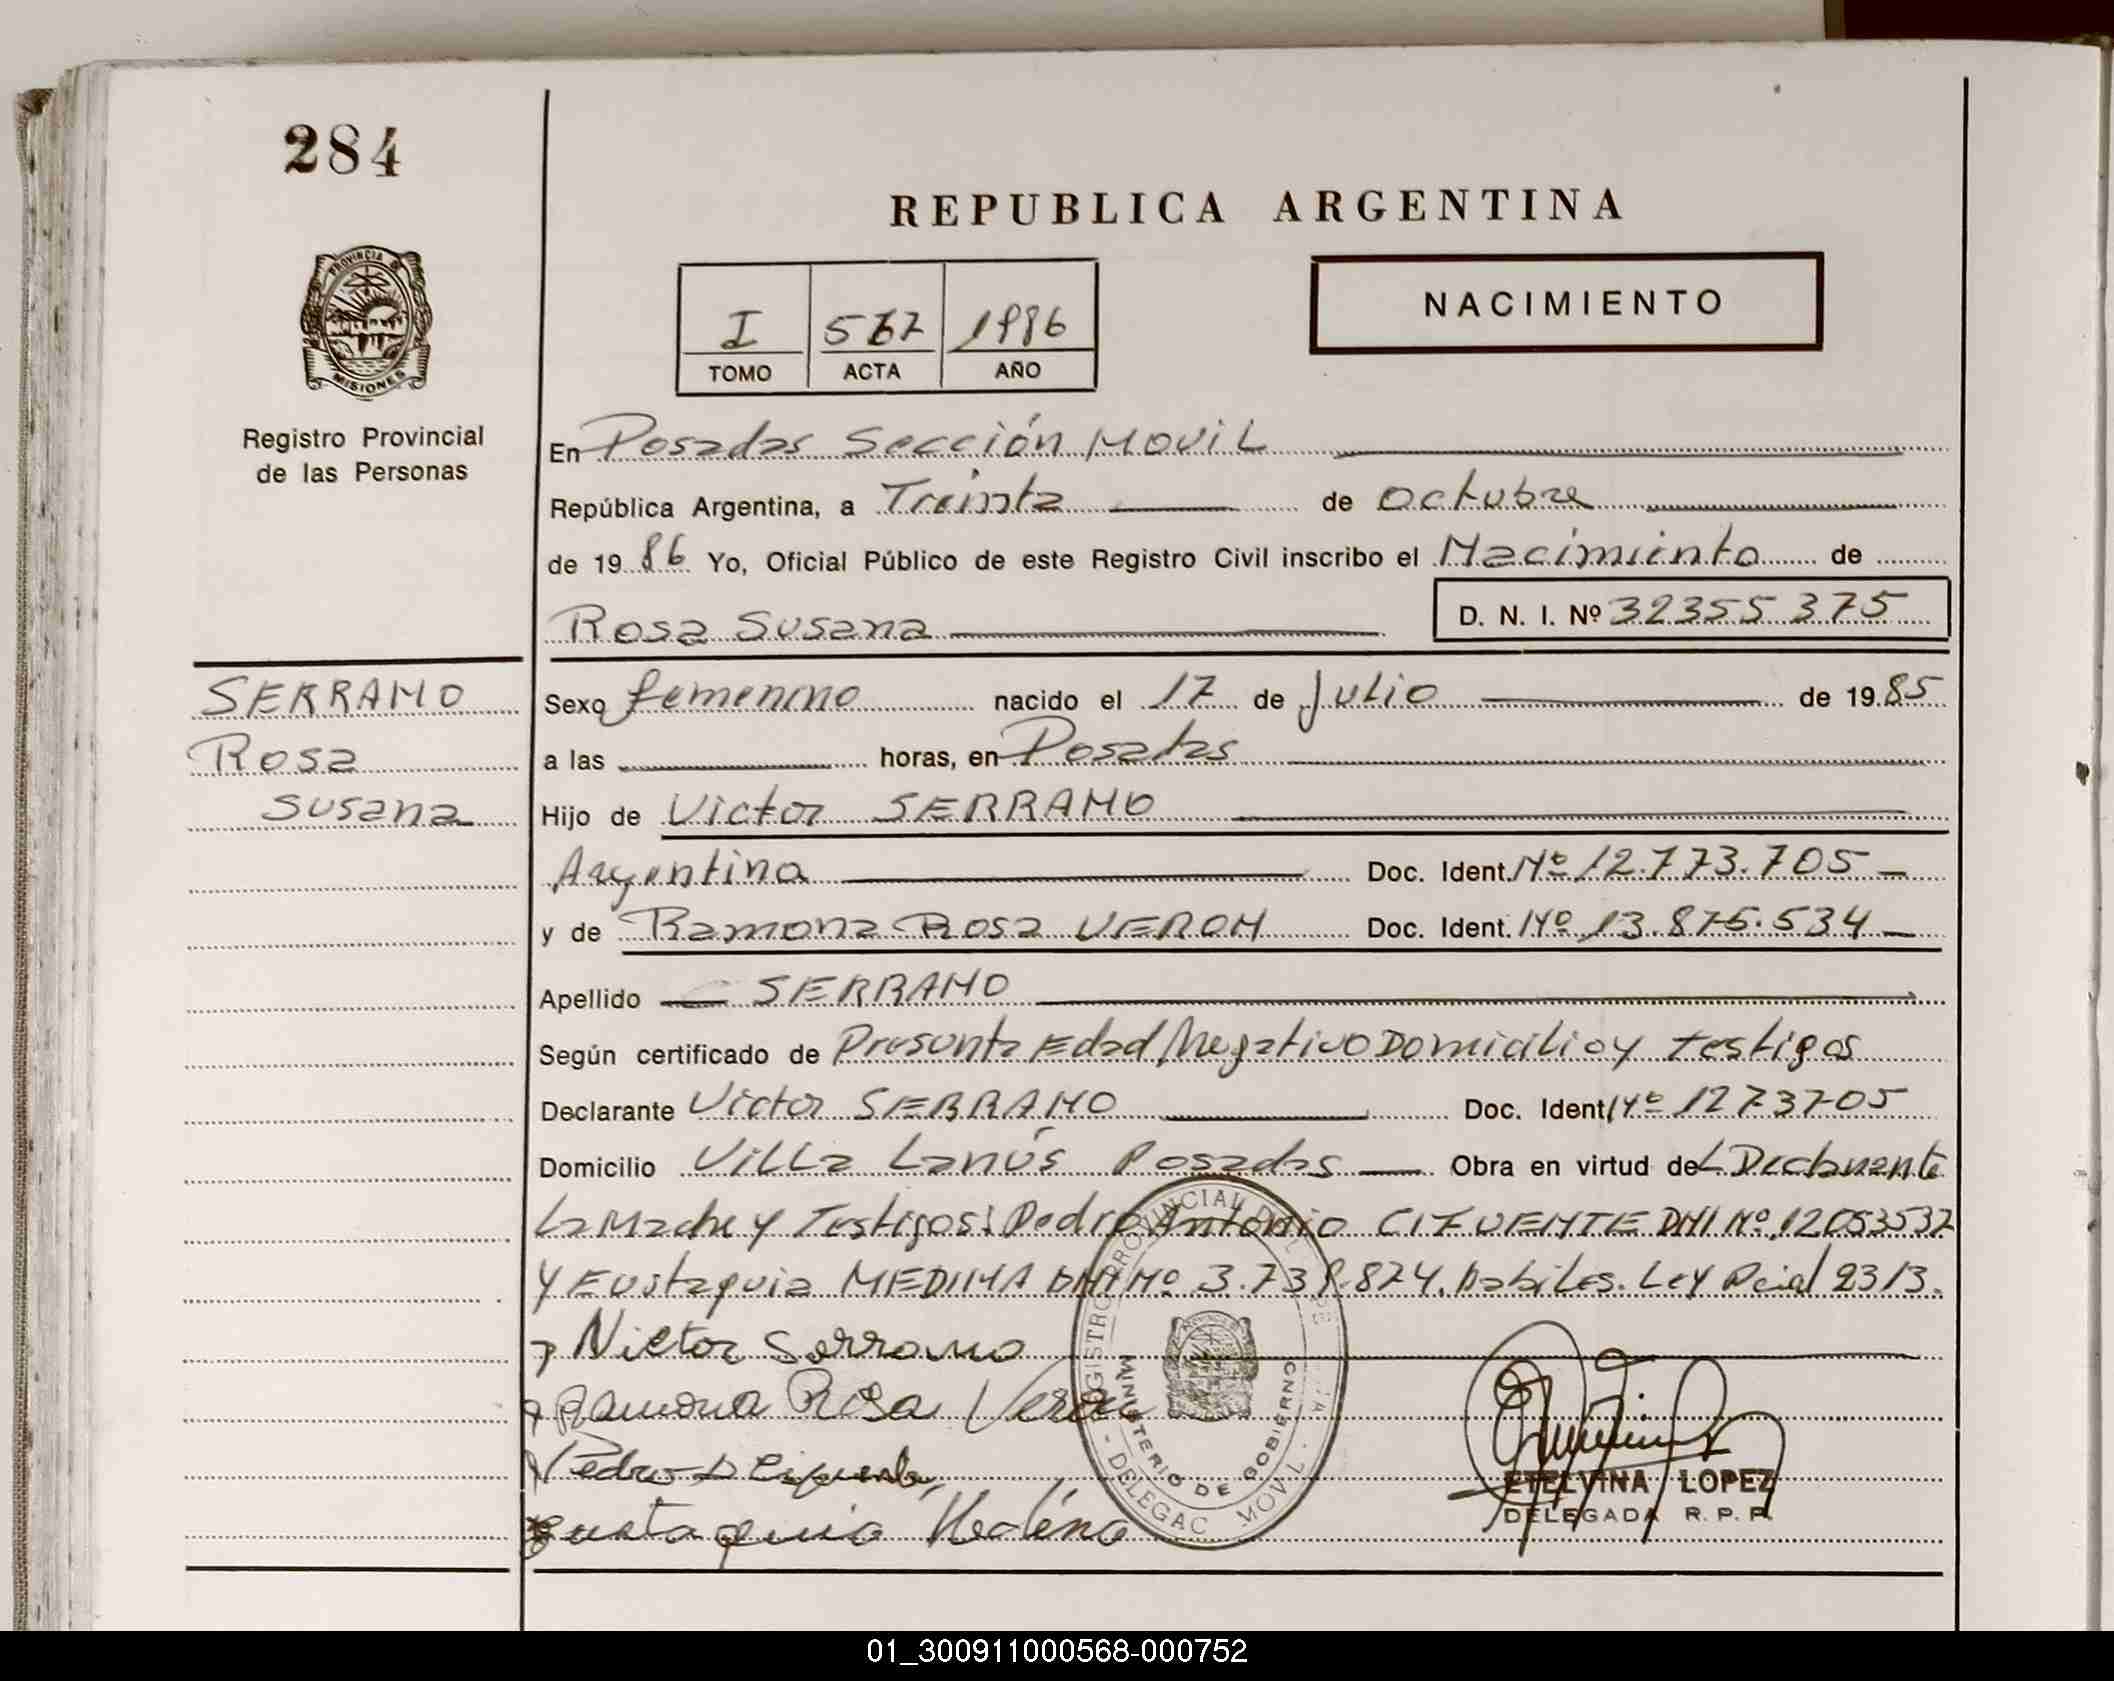 284
REPUBLICA ARGENTINA
PROVINCIA DE
MISIONES
NACIMIENTO
I 567 1986
TOMO ACTA AÑO
Registro Provincial
de las Personas
En Posadas Sección Movil
República Argentina, a Treinta de octubre
de 1986 Yo, Oficial Público de este Registro Civil inscribo el Nacimiento de
Rosa Susana D. N. I. Nº 32355375
SERRANO
Rosa
Susana
Sexo femenino nacido el 17 de Julio de 1985
a las horas, en Posadas
Hijo de Victor SERRANO
Argentina Doc. Ident. Nº 12.773.705
y de Ramona Rosa VERON Doc. Ident. Nº 13.875.534
Apellido SERRANO
Según certificado de Presunta Edad, Negativo Domicilio y testigos
Declarante Victor SERRANO Doc. Ident. Nº 12737705
Domicilio Villa Lanús Posadas Obra en virtud del Declarante
La Madre y Testigos: Pedro Antonio CIFUENTE DNI Nº 12053537
y Eustaquia MEDINA DNI Nº 3.739.874. habiles. Ley Pcial 2313.
Victor Serrano
Ramona Rosa Veron
Pedro A Cifuente
Eustaquia Medina
REGISTRO PROVINCIAL DE L PE
MINISTERIO DE GOBIERNO
DELEGAC MOVIL
ETELVINA LOPEZ
DELEGADA R. P. P.
01_300911000568-000752